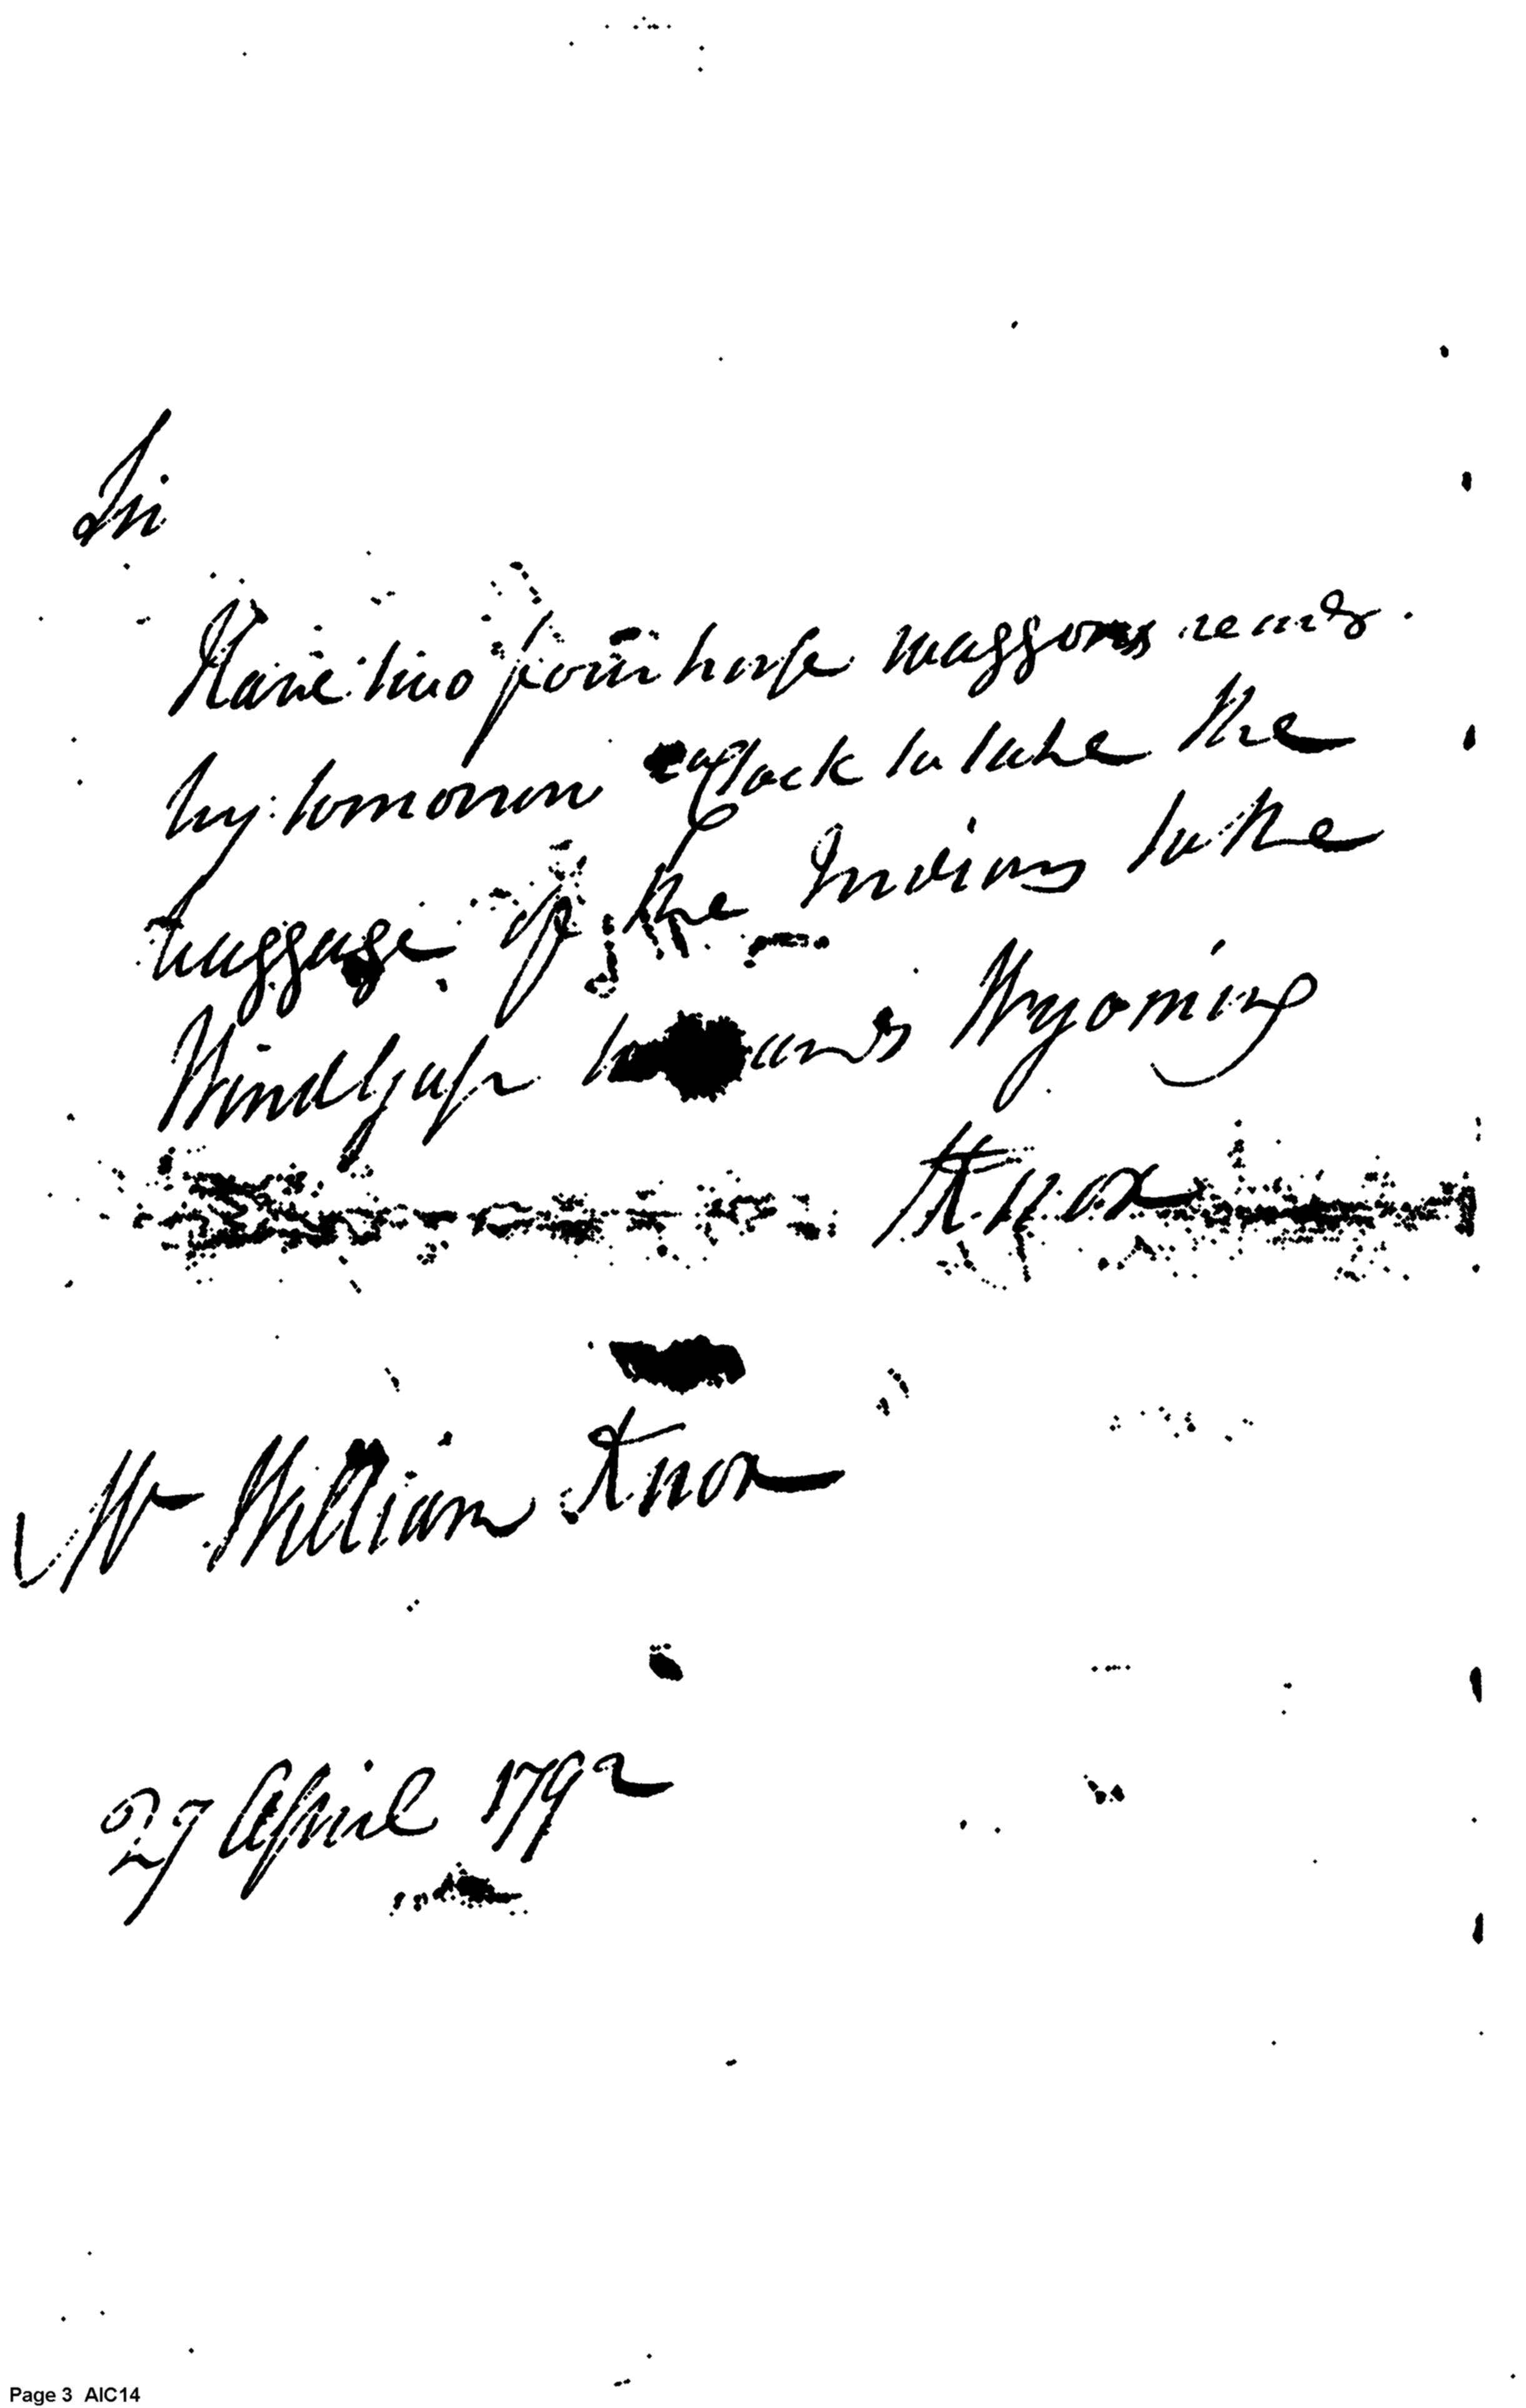 Sir
Have two four horse waggons ready
by tomorrow oClock to take the
baggage of the Indians to the
Wind Gap towards Wyoming
HKnox
Mr William Knox
27 April 1792
Page 3 AIC14